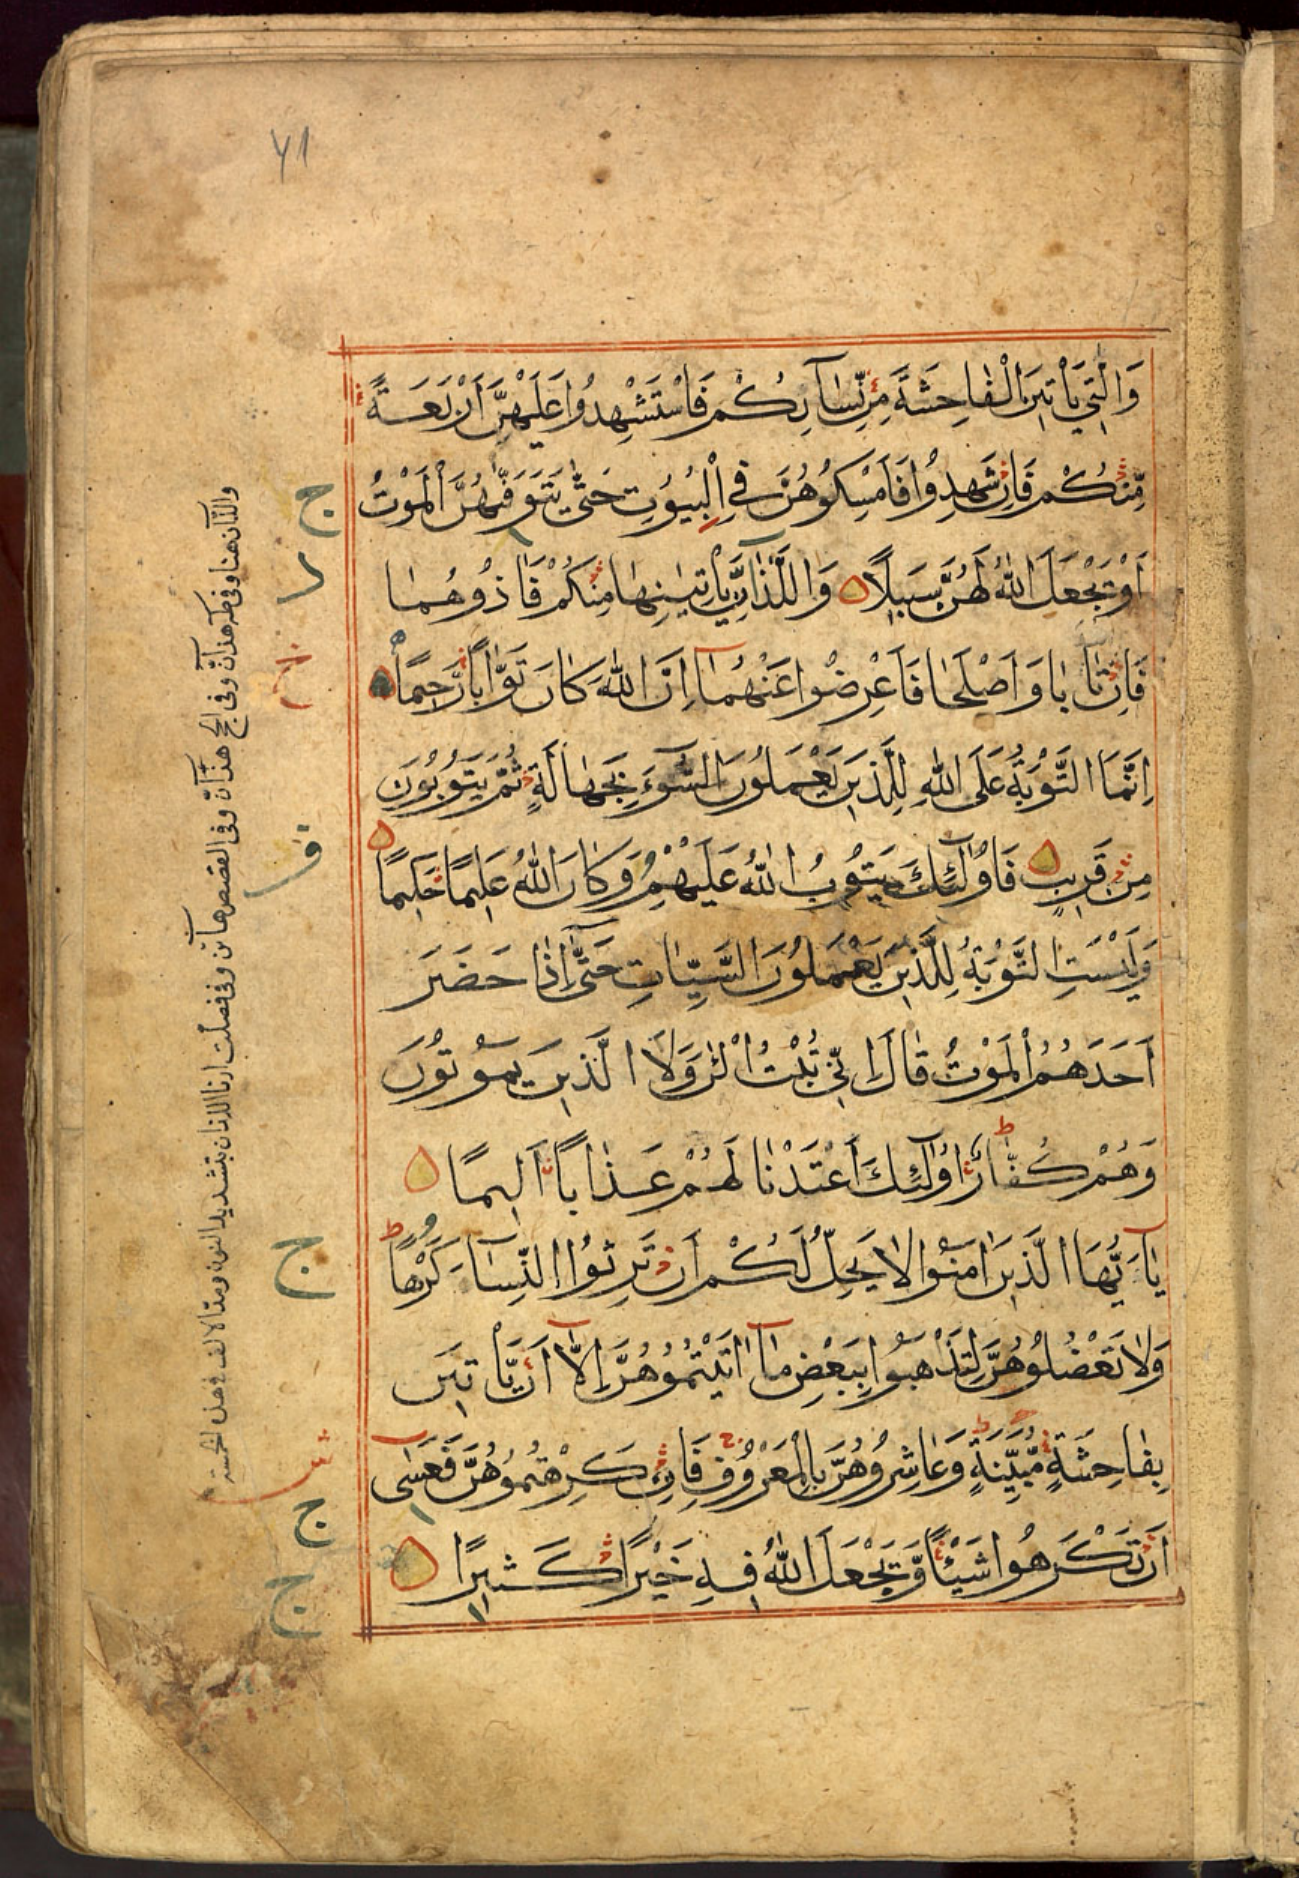 ٧١
وَالّٰتِي يَأْتِينَ الْفَاحِشَةَ مِنْ نِّسَآئِكُمْ فَاسْتَشْهِدُوا عَلَيْهِنَّ اَرْبَعَةً
مِّنْكُمْ فَاِنْ شَهِدُوْا فَاَمْسِكُوْهُنَّ فِي الْبُيُوتِ حَتّٰى يَتَوَفّٰهُنَّ الْمَوْتُ
اَوْ يَجْعَلَ اللّٰهُ لَهُنَّ سَبِيلًا وَاللَّذَانِ يَأْتِيٰنِهَا مِنْكُمْ فَاٰذُوهُمَا
فَاِنْ تَابَا وَاَصْلَحَا فَاَعْرِضُوا عَنْهُمَا اِنَّ اللّٰهَ كَانَ تَوَّابًا رَّحِيمًا
اِنَّمَا التَّوْبَةُ عَلَى اللّٰهِ لِلَّذِينَ يَعْمَلُونَ السُّوٓءَ بِجَهَالَةٍ ثُمَّ يَتُوبُونَ
مِنْ قَرِيبٍ فَاُولٰٓئِكَ يَتُوبُ اللّٰهُ عَلَيْهِمْ وَكَانَ اللّٰهُ عَلِيمًا حَكِيمًا
وَلَيْسَتِ التَّوْبَةُ لِلَّذِينَ يَعْمَلُونَ السَّيِّاٰتِ حَتّٰٓى اِذَا حَضَرَ
اَحَدَهُمُ الْمَوْتُ قَالَ اِنِّي تُبْتُ الْئٰنَ وَلَا الَّذِينَ يَمُوتُونَ
وَهُمْ كُفَّارٌ اُولٰٓئِكَ اَعْتَدْنَا لَهُمْ عَذَابًا اَلِيمًا
يَآ اَيُّهَا الَّذِينَ اٰمَنُوا لَا يَحِلُّ لَكُمْ اَنْ تَرِثُوا النِّسَآءَ كَرْهًا
وَلَا تَعْضُلُوهُنَّ لِتَذْهَبُوا بِبَعْضِ مَآ اٰتَيْتُمُوهُنَّ اِلَّآ اَنْ يَّأْتِينَ
بِفَاحِشَةٍ مُّبَيِّنَةٍ وَعَاشِرُوهُنَّ بِالْمَعْرُوفِ فَاِنْ كَرِهْتُمُوهُنَّ فَعَسٰٓى
اَنْ تَكْرَهُوا شَيْئًا وَّيَجْعَلَ اللّٰهُ فِيهِ خَيْرًا كَثِيرًا
ج
خ
ج
ج
ج
واللذان هنا وفى طه هذان وفى الحج هذان وفى القصص هاتين وفى فصلت ارنا اللذين بتشديد النون ومد الالف فى هذه الخمسة